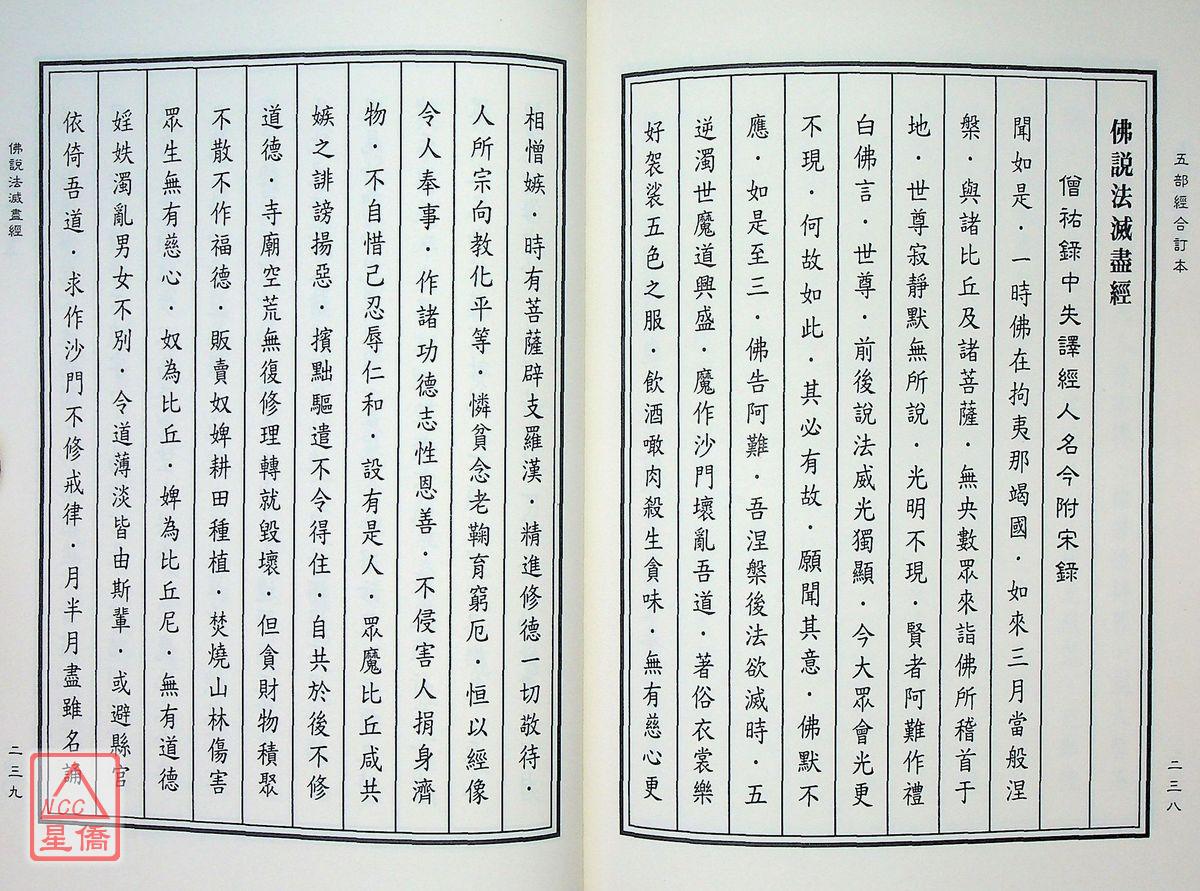 五部經合訂本
佛説法滅盡經
僧祐錄中失譯經人名今附宋錄
聞如是．一時佛在拘夷那竭國．如來三月當般涅
槃．與諸比丘及諸菩薩．無央數眾來詣佛所稽首于
地．世尊寂靜默無所說．光明不現．賢者阿難作禮
白佛言．世尊．前後說法威光獨顯．今大眾會光更
不現．何故如此．其必有故．願聞其意．佛默不
應．如是至三．佛告阿難．吾涅槃後法欲滅時．五
逆濁世魔道興盛．魔作沙門壞亂吾道．著俗衣裳樂
好袈裟五色之服．飲酒噉肉殺生貪味．無有慈心更
二三八
相憎嫉．時有菩薩辟支羅漢．精進修德一切敬待．
人所宗向教化平等．憐貧念老鞠育窮厄．恒以經像
令人奉事．作諸功德志性恩善．不侵害人捐身濟
物．不自惜己忍辱仁和．設有是人．眾魔比丘咸共
嫉之誹謗揚惡．擯黜驅遣不令得住．自共於後不修
道德．寺廟空荒無復修理轉就毀壞．但貪財物積聚
不散不作福德．販賣奴婢耕田種植．焚燒山林傷害
眾生無有慈心．奴為比丘．婢為比丘尼．無有道德
婬妷濁亂男女不別．令道薄淡皆由斯輩．或避縣官
依倚吾道．求作沙門不修戒律．月半月盡雖名誦
佛説法滅盡經
二三九
NCC
星僑